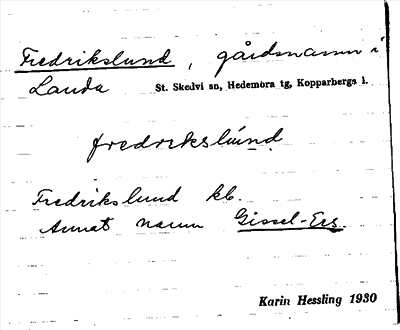 Fredrikslund, gårdsnamn i
Landa St. Skedvi sn, Hedemora tg, Kopparbergs l.
fredrikslund
Fredrikslund kb.
Annat namn Gissel-Ers.
Karin Hessling 1930